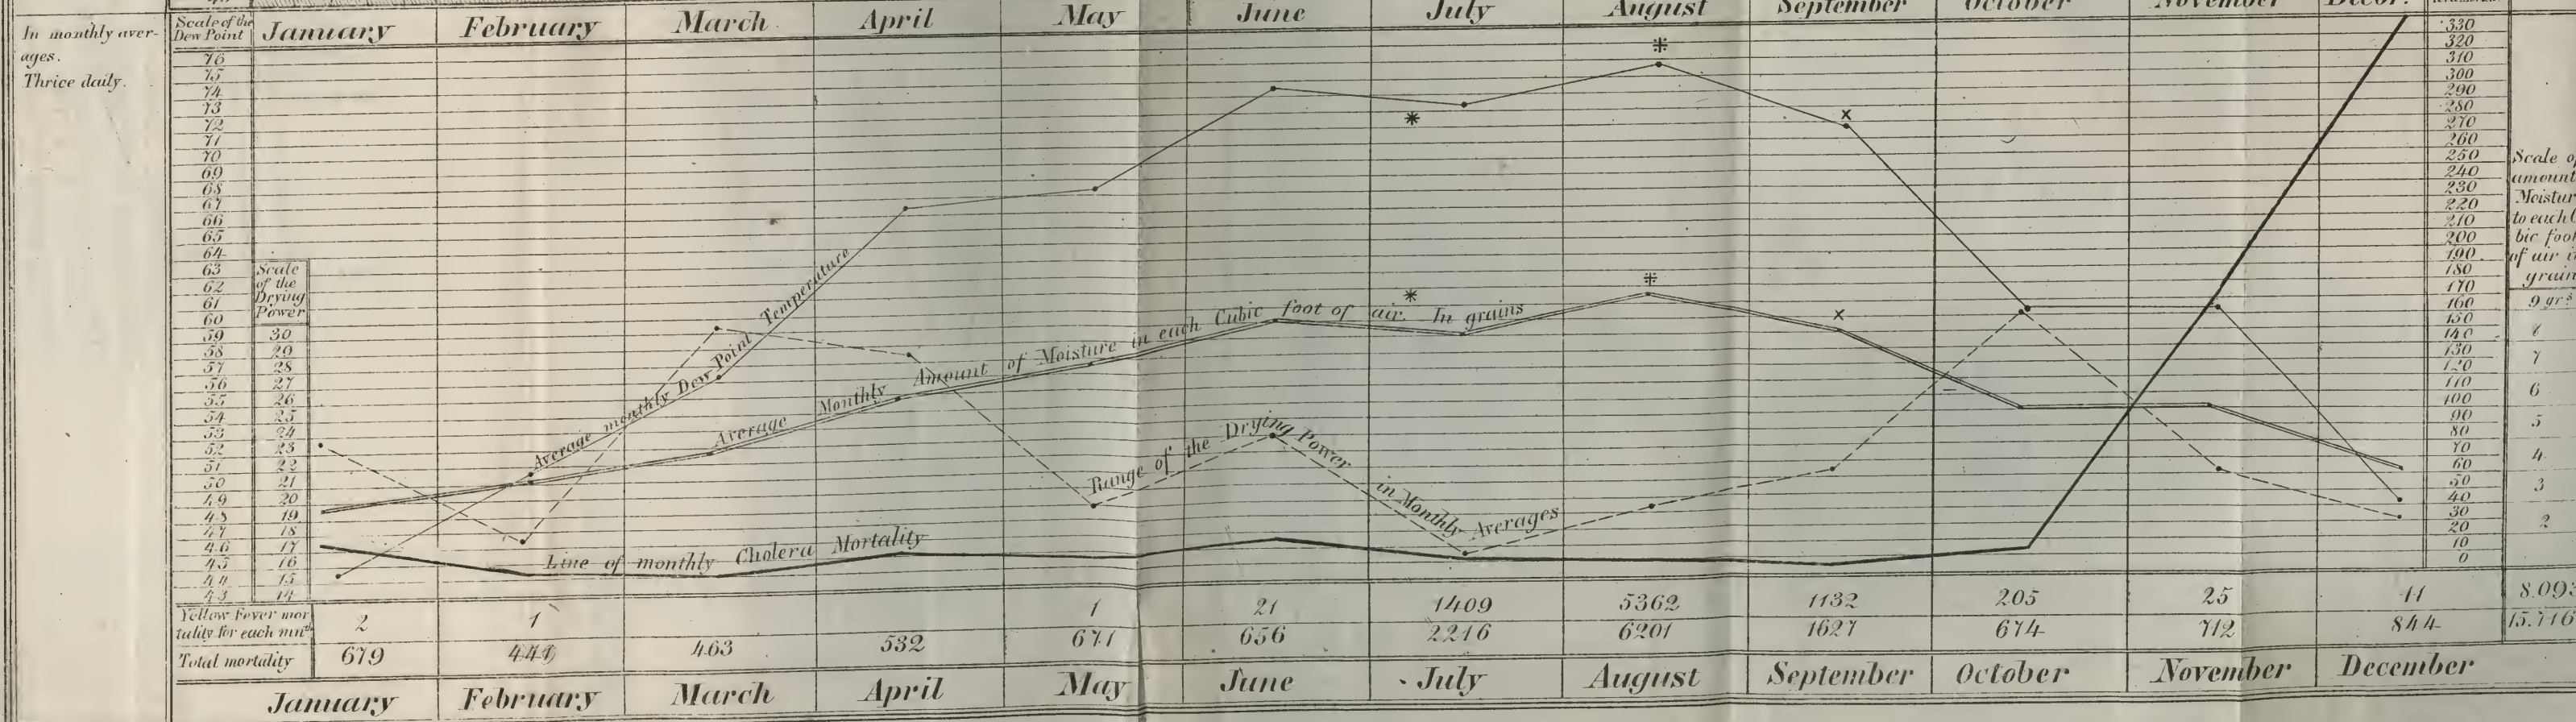 In monthly aver-
ages.
Thrice daily.
Scale of the
Dew Point
January February March April May June July August September October November Decbr.
76
75
74
73
72
71
70
69
68
67
66
65
64
63
62
61
60
59
58
57
56
55
54
53
52
51
50
49
48
47
46
45
44
43
Scale
of the
Drying
Power
30
29
28
27
26
25
24
23
22
21
20
19
18
17
16
15
14
Average monthly Dew Point Temperature
Average Monthly Amount of Moisture in each Cubic foot of air. In grains
Range of the Drying Power in Monthly Averages
Line of monthly Cholera Mortality
330
320
310
300
290
280
270
260
250
240
230
220
210
200
190
180
170
160
150
140
130
120
110
100
90
80
70
60
50
40
30
20
10
0
Scale of
amount
Moistur
to each C
bic foot
of air in
grain
9 grs
7
6
5
4
3
2
Yellow Fever mor
tality for each mnth
2 1 1 21 1409 5362 1132 205 25 11 8.093
Total mortality 679 463 532 671 656 2216 6201 1627 674 712 844
January February March April May June July August September October November December